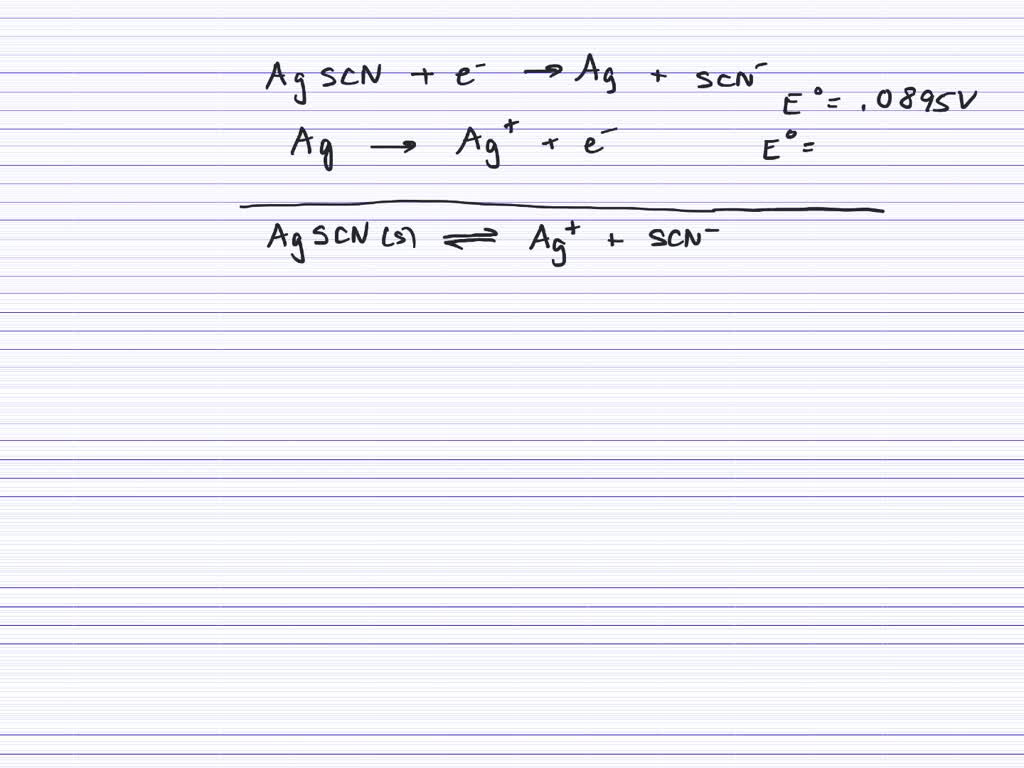 AgSCN + e⁻ → Ag + SCN⁻ E° = .0895V
Ag → Ag⁺ + e⁻ E° =
AgSCN(s) ⇌ Ag⁺ + SCN⁻